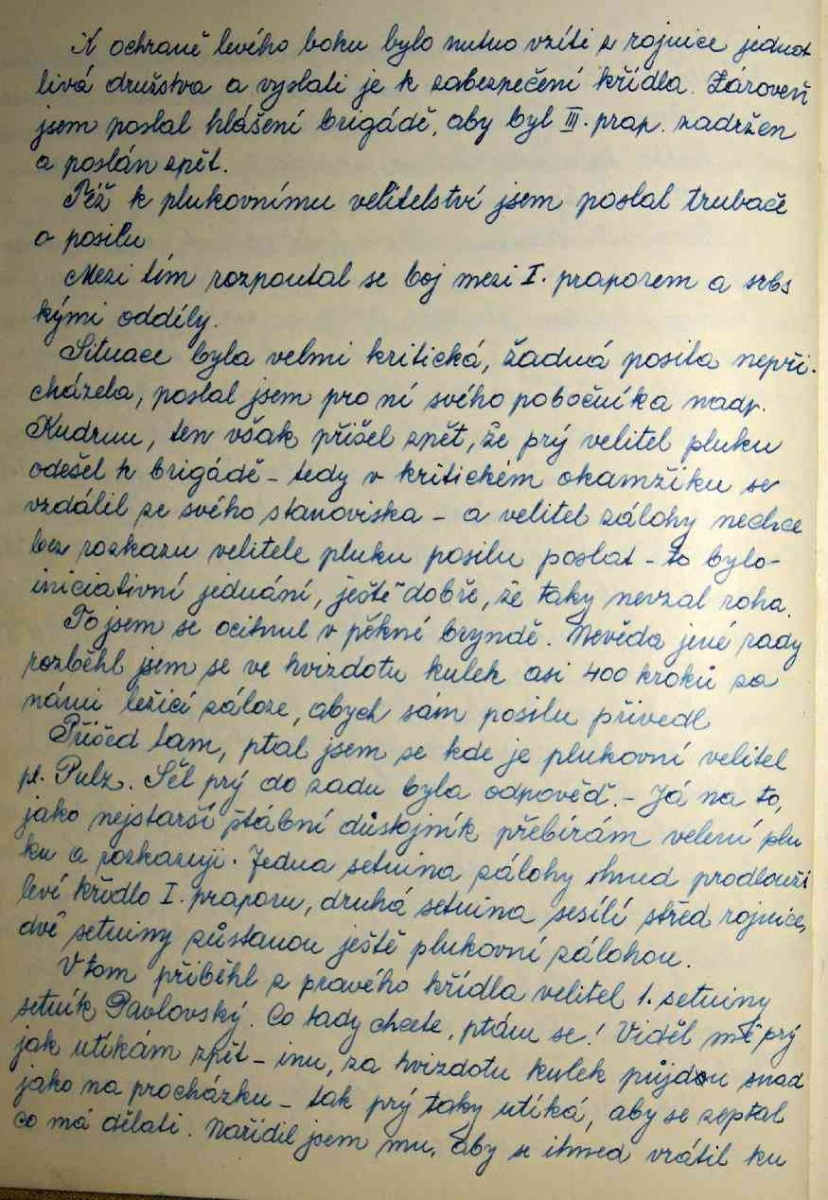 K ochraně levého boku bylo nutno vzíti z rojnice jednot
livá družstva a vyslati je k zabezpečení křídla. Zároveň
jsem poslal hlášení brigádě, aby byl III. prap. zadržen
a poslán zpět.
Též k plukovnímu velitelství jsem poslal trubače
o posilu
Mezi tím rozpoutal se boj mezi I. praporem a srbs
kými oddíly.
Situace byla velmi kritická, žádná posila nepři-
cházela, poslal jsem pro ní svého pobočníka nadp.
Kudrnu, ten však přišel zpět, že prý velitel pluku
odešel k brigádě - tedy v kritickém okamžiku se
vzdálil ze svého stanoviska - a velitel zálohy nechce
bez rozkazu velitele pluku posilu poslat - to bylo-
iniciativní jednání, ještě dobře, že taky nevzal roha.
To jsem se ocitnul v pěkní bryndě. Nevěda jené rady
rozběhl jsem se ve hvizdotu kulek asi 400 kroků za
námi ležící záloze, abych sám posilu přivedl
Přišed tam, ptal jsem se kde je plukovní velitel
pl. Pulz. Šel prý do zadu byla odpověď. - Já na to,
jako nejstarší štábní důstojník přebírám velení plu
ku a rozkazuji. Jedna setnina zálohy ihned prodlouží
leví křídlo I. praporu, druhá setnina sesílí střed rojnice,
dvě setniny zůstanou ještě plukovní zálohou.
V tom přiběhl z pravého křídla velitel 1. setniny
setník Pavlovský. Co tady chcete, ptám se! Viděl mě prý
jak utíkám zpět - inu, za hvizdotu kulek půjdou snad
jako na procházku - tak prý taky utíká, aby se zeptal
co má dělati. Nařídil jsem mu, aby se ihned vrátil ku